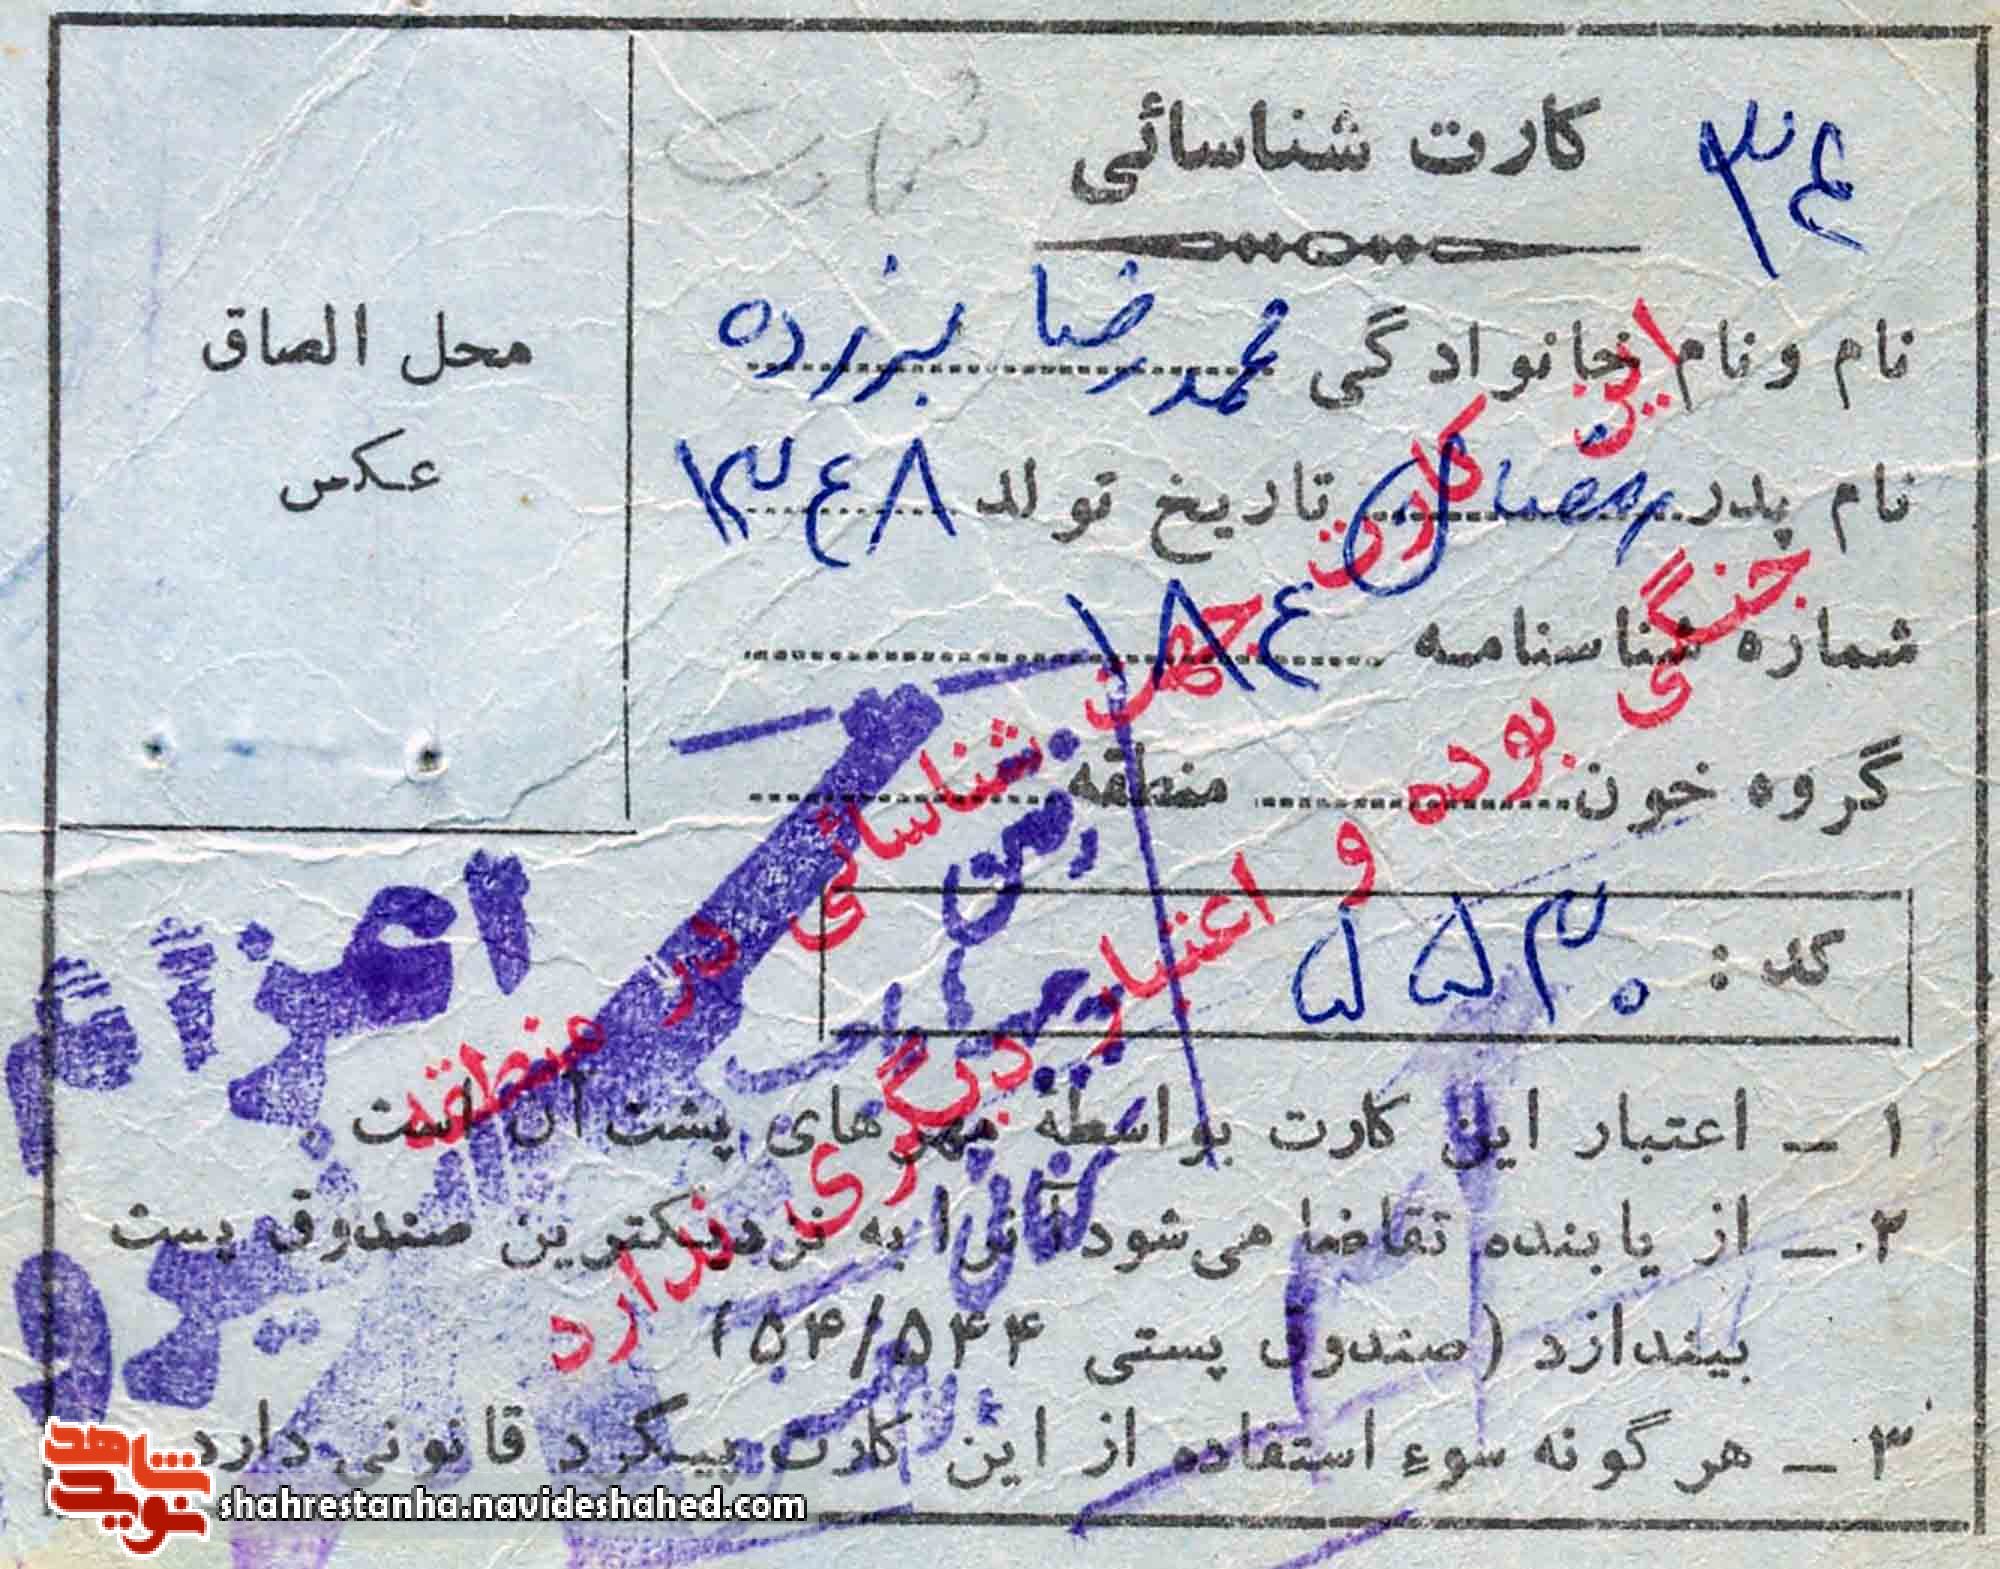 ۳۴
کارت شناسائی
شهادت
نام و نام خانوادگی محمدرضا
نام پدر رمضان تاریخ تولد ۱۳۴۸
شماره شناسنامه ۱۸۴
گروه خون منطقه
کد : ۵۵۳۰
محل الصاق
عکس
این کارت جهت شناسائی در منطقه
جنگی بوده و اعتبار دیگری ندارد
اعزام
نیرو
۱ ــ اعتبار این کارت بواسطهٔ مهرهای پشت آن است .
۲ ــ از یابنده تقاضا می‌شود آنرا به نزدیکترین صندوق پست
بیندازد (صندوق پستی ۵۴/۵۴۴)
۳ ــ هرگونه سوء استفاده از این کارت پیگرد قانونی دارد
نوید شاهد
shahrestanha.navideshahed.com